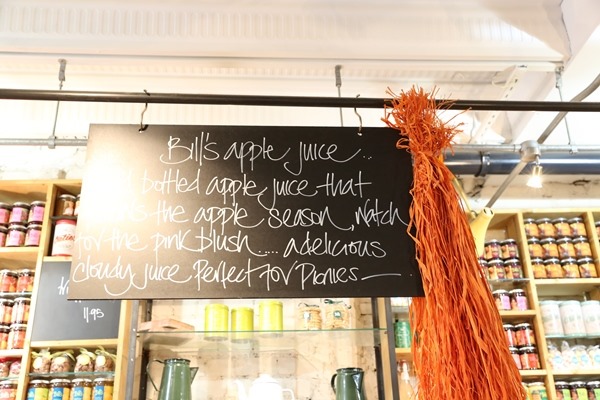 Bill's apple juice..
bottled apple juice that
the apple season, Watch
for the pink blush.... a delicious
cloudy juice Perfect for Picnics
11/95